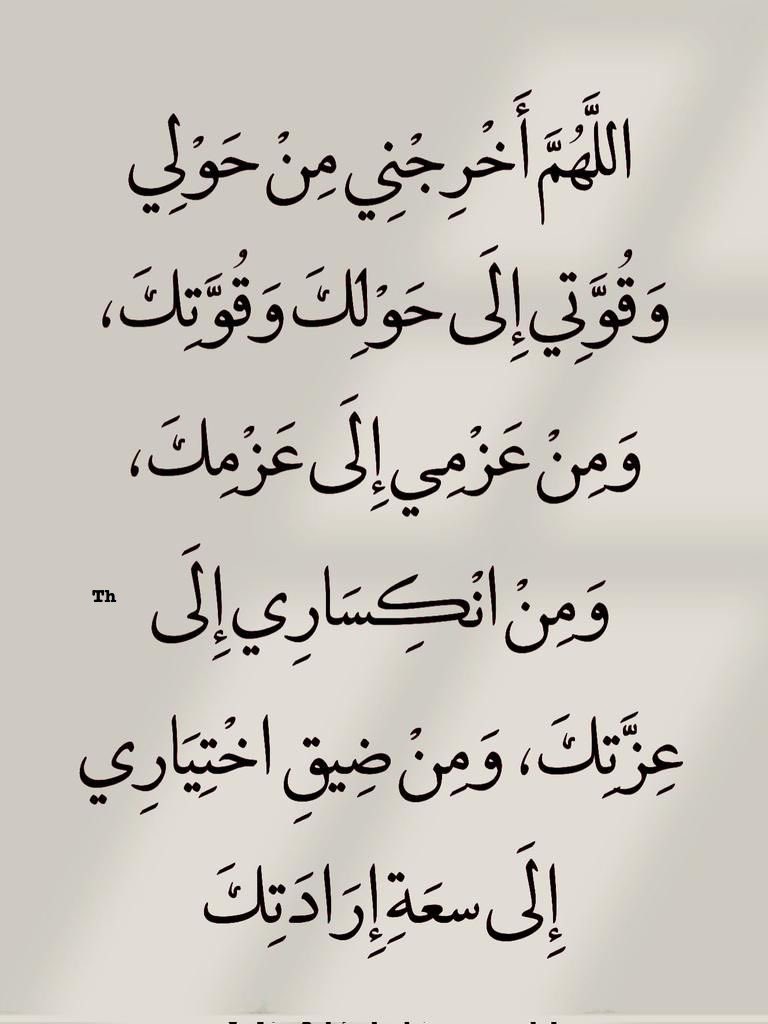 اللَّهُمَّ أَخْرِجْنِي مِنْ حَوْلِي
وَقُوَّتِي إِلَى حَوْلِكَ وَقُوَّتِكَ،
وَمِنْ عَزْمِي إِلَى عَزْمِكَ،
وَمِنْ انْكِسَارِي إِلَى
Th
عِزَّتِكَ، وَمِنْ ضِيقِ اخْتِيَارِي
إِلَى سعَةِ إِرَادَتِكَ